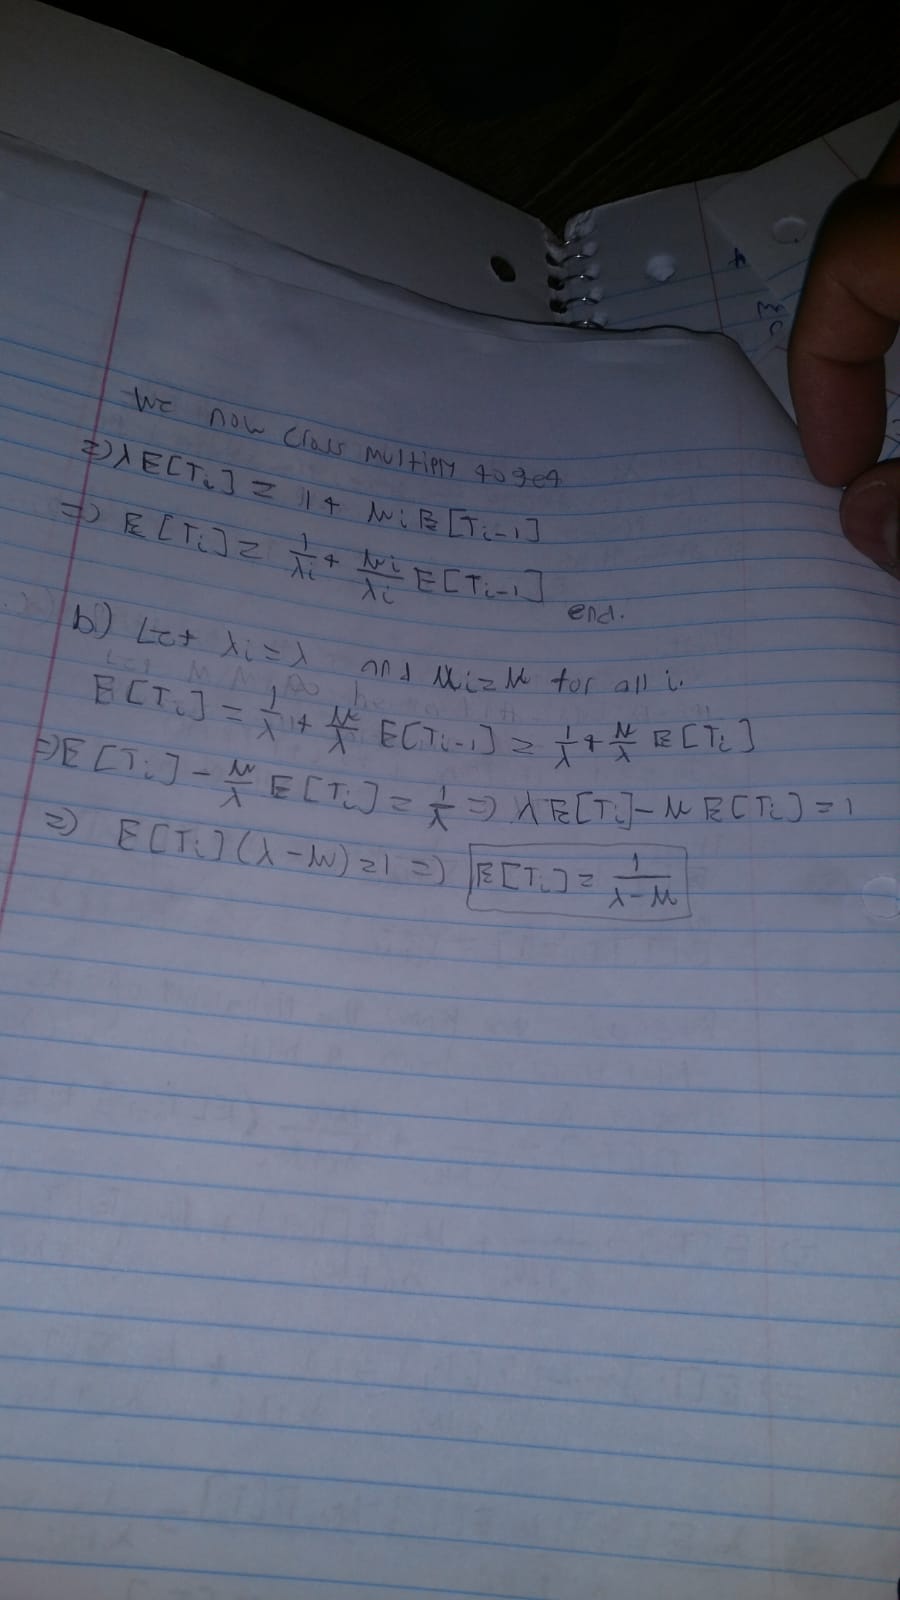 We now cross multiply to get
=> λ E[Ti] = 1 + μi E[Ti-1]
=> E[Ti] = 1/λi + μi/λi E[Ti-1] end.
b) Let λi = λ and μi = μ for all i.
E[Ti] = 1/λ + μ/λ E[Ti-1] = 1/λ + μ/λ E[Ti]
=> E[Ti] - μ/λ E[Ti] = 1/λ => λ E[Ti] - μ E[Ti] = 1
=> E[Ti](λ-μ) = 1 => E[Ti] = 1/λ-μ